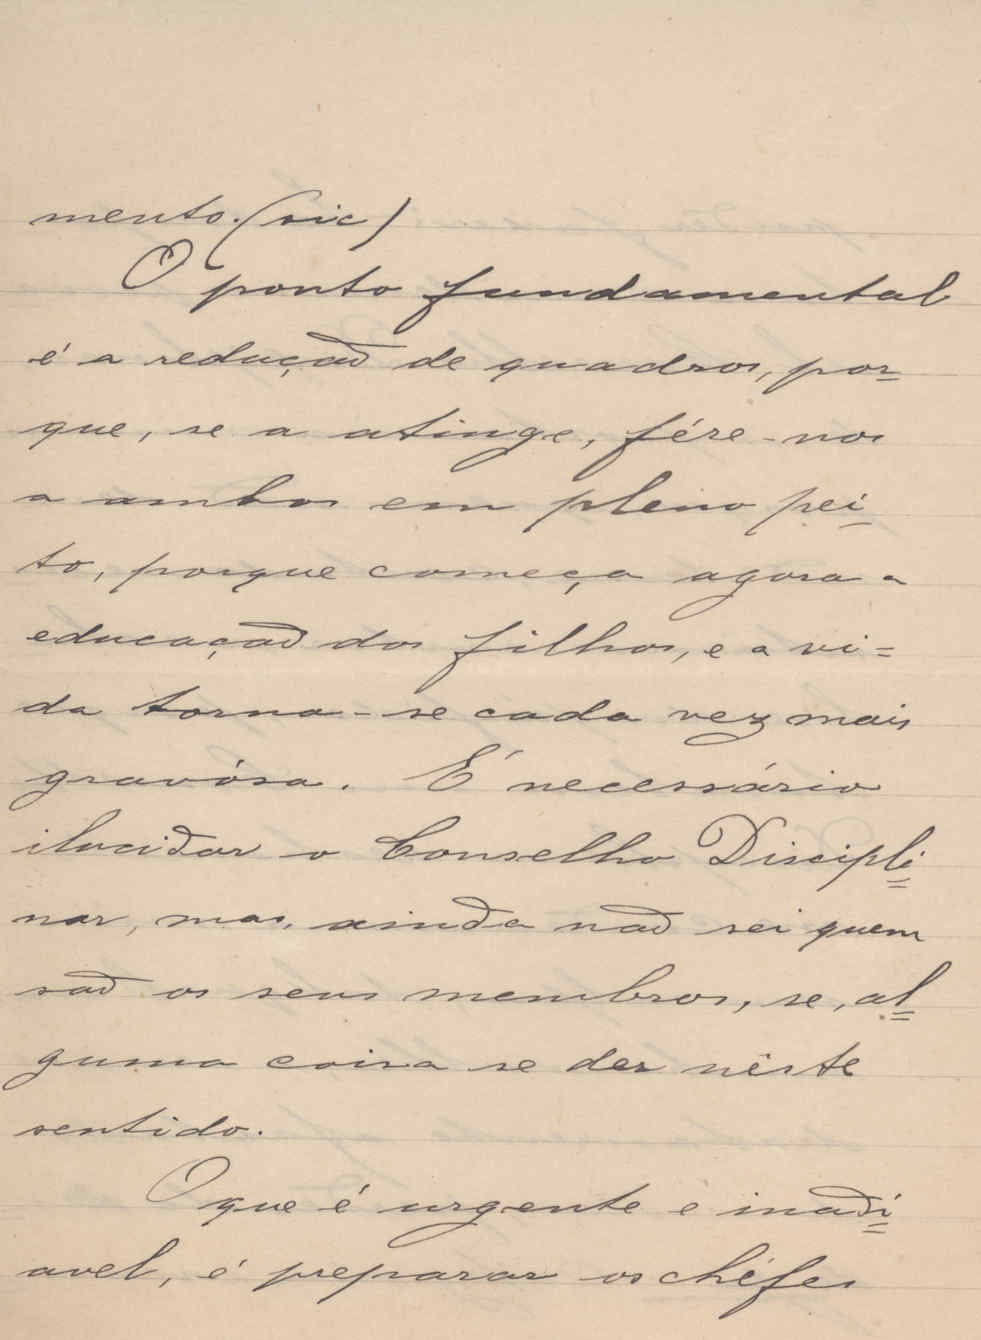 mento. (sic)
O ponto fundamental
é a redução de quadros, por-
que, se a atinge, fére-nos
a ambos em pleno pei-
to, porque começa agora a
educação dos filhos, e a vi=
da torna-se cada vez mais
gravósa. É necessário
ilucidar o Conselho Discipli=
nar, mas, ainda não sei quem
são os seus membros, se, al=
guma coisa se der nêste
sentido.
O que é urgente e inadi=
avel, é preparar os chéfes